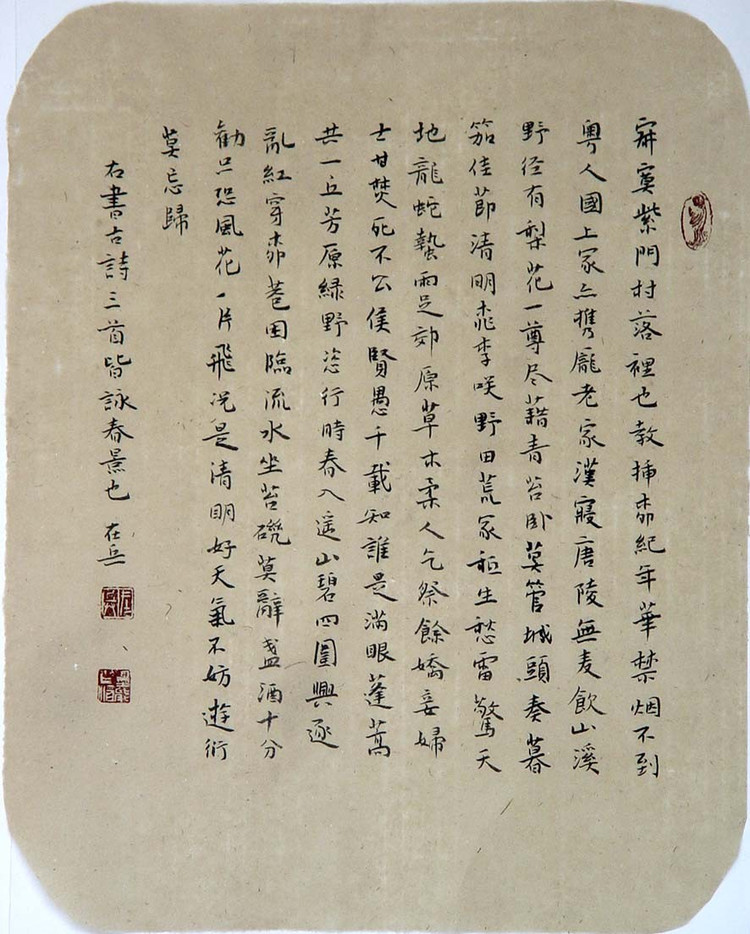 寂寞紫門村落裡也教揷柳紀年華禁烟不到
粤人國上冢亦携龐老家漢寢唐陵無麦飲山溪
野径有梨花一尊尽藉青苔卧莫管城頭奏暮
笳佳節清明桃李咲野田荒冢秪生愁雷驚天
地龍蛇蟄雨足郊原草木柔人乞祭餘嬌妾婦
士甘焚死不公侯賢愚千載知誰是滿眼蓬蒿
共一丘芳原緑野恣行時春入遥山碧四圍興逐
亂紅穿柳巷困臨流水坐苔磯莫辭盞酒十分
勸只恐風花一片飛况是清明好天氣不妨遊衍
莫忘歸
右書古詩三首皆詠春景也 在兵